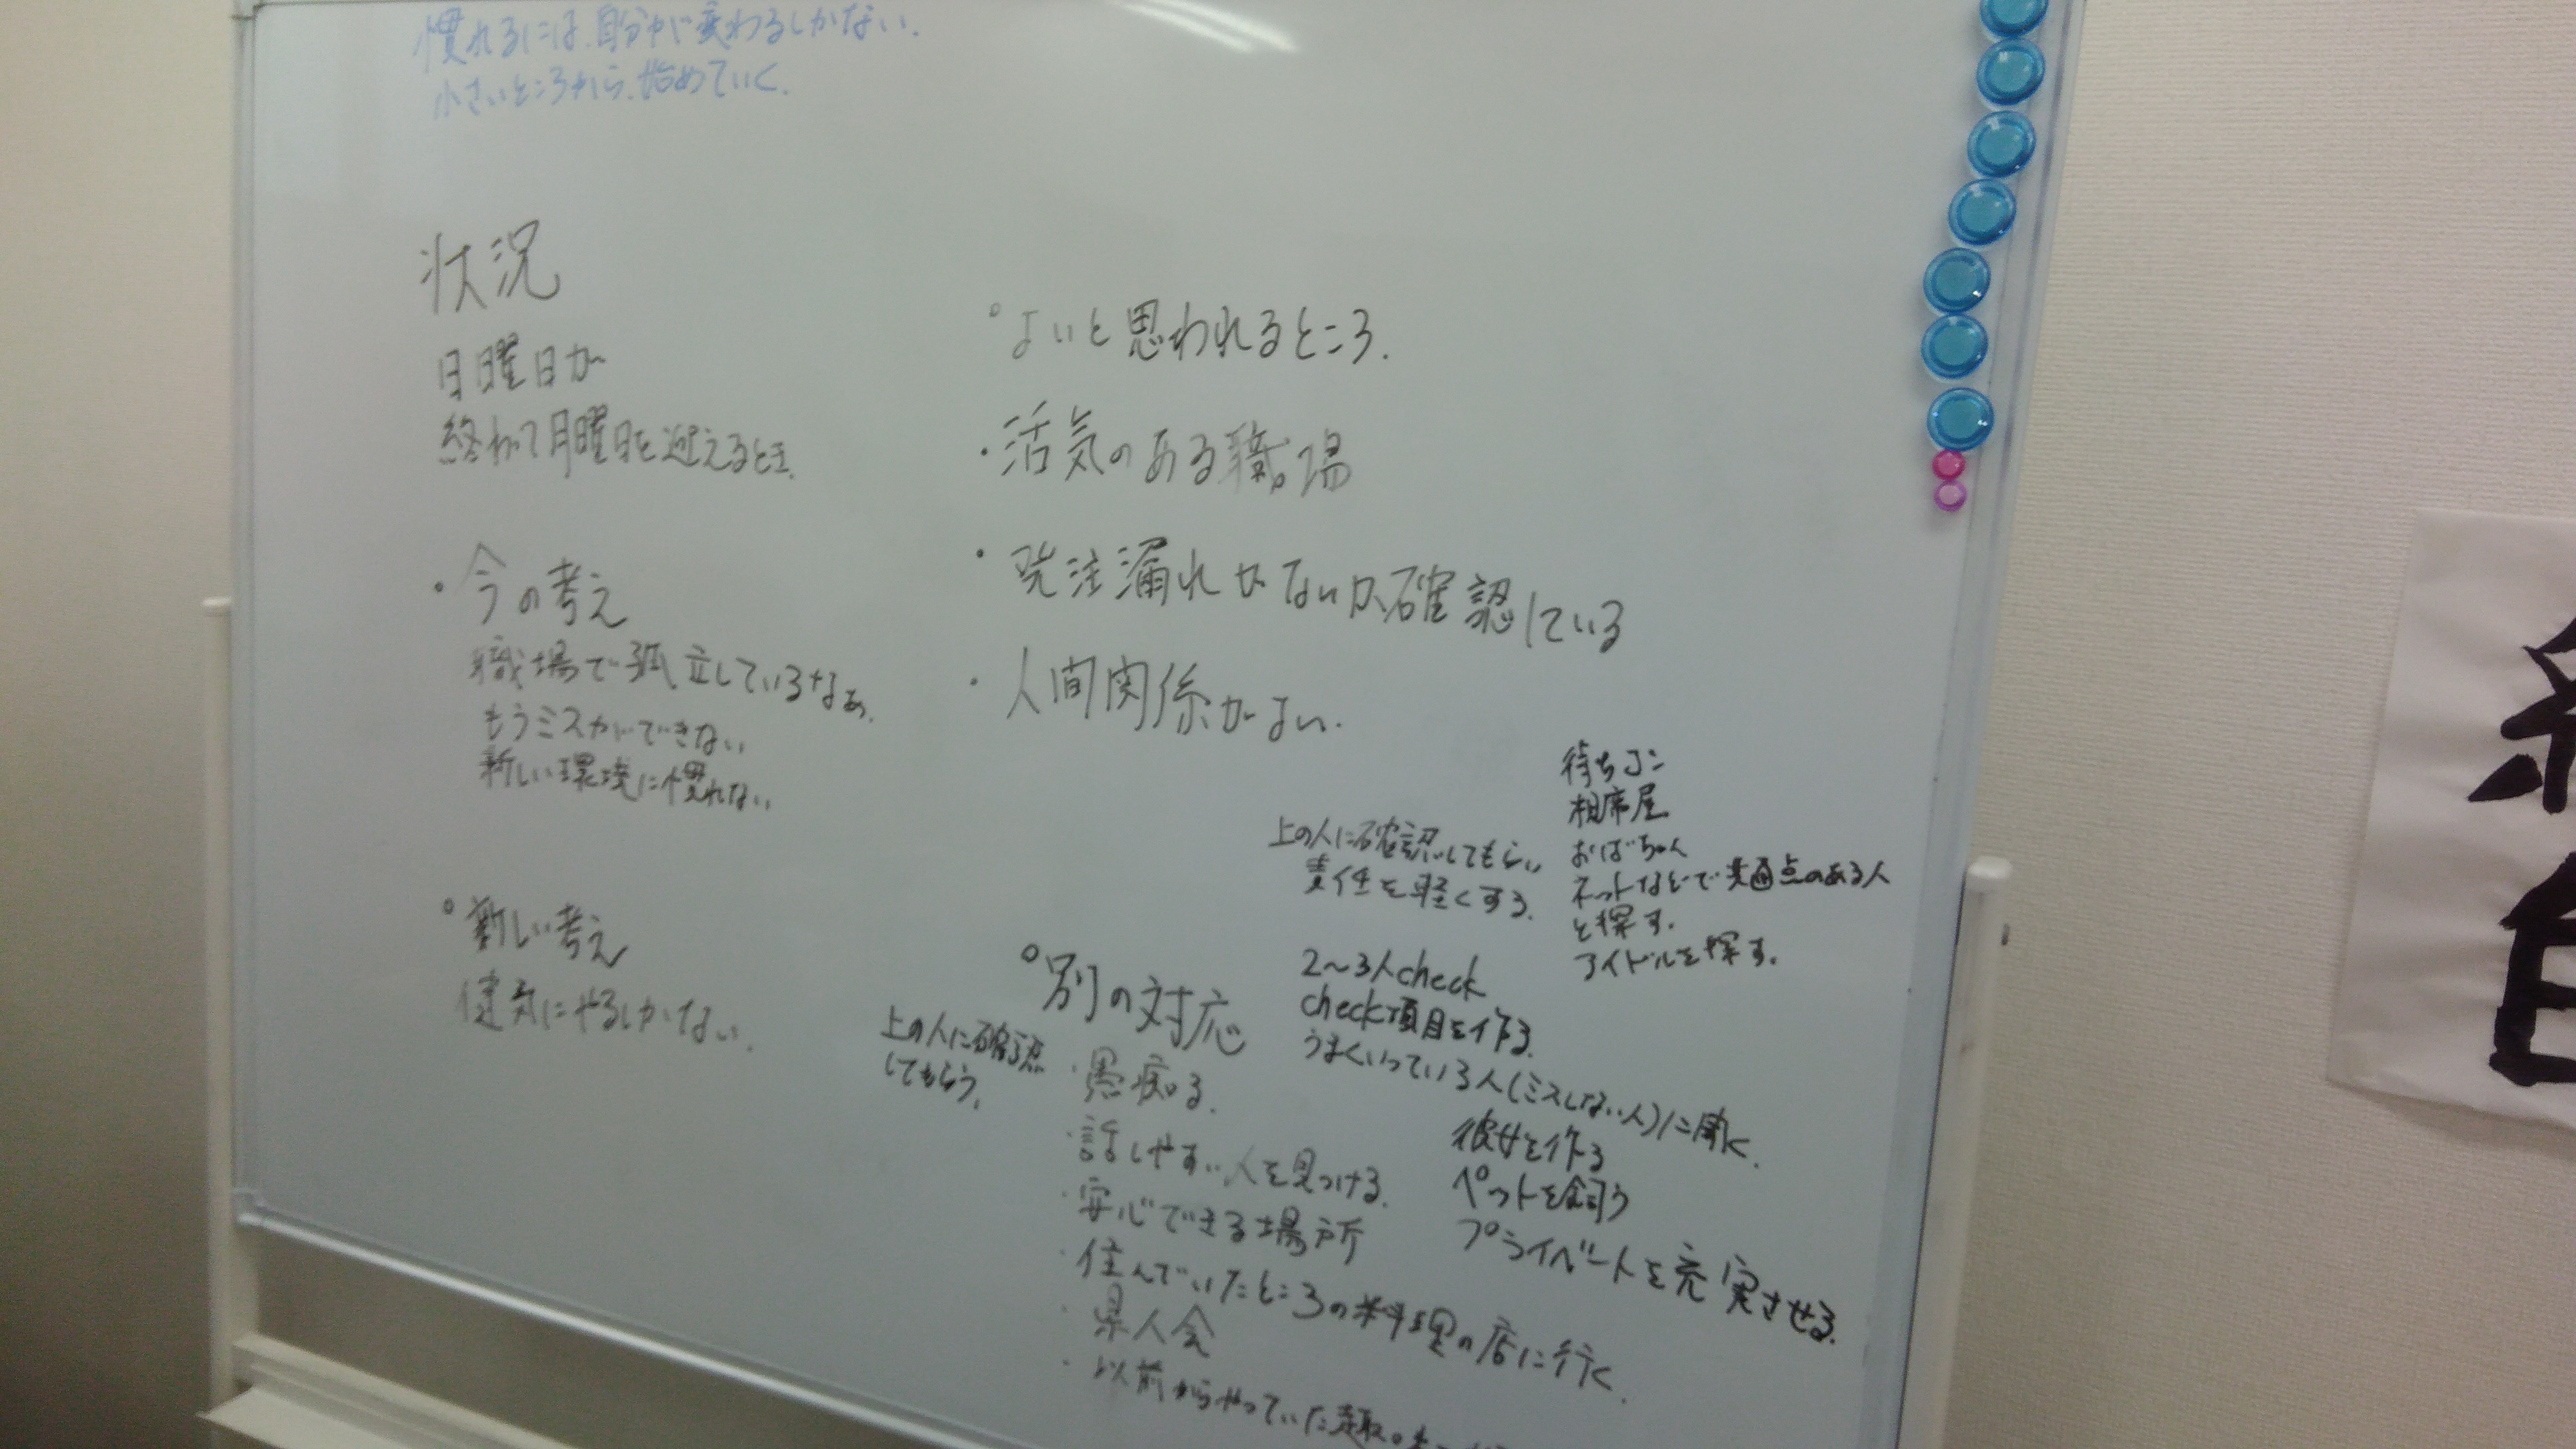 慣れるには、自分が変わるしかない.
小さいところから、始めていく.
状況
日曜日が
終わって月曜日を迎えるとき.
・今の考え
職場で孤立しているなぁ.
もうミスができない
新しい環境に慣れない
°新しい考え
健気にやるしかない.
°よいと思われるところ.
・活気のある職場
・発注漏れがないか確認している
・人間関係がよい.
上の人に確認してもらい
責任を軽くする.
待ちコン
相席屋
おばちゃん
ネットなどで共通点のある人
を探す.
アイドルを探す.
°別の対応
上の人に確認
してもらう.
2〜3人check
check項目を作る.
うまくいっている人(ミスしない人)に聞く.
彼女を作る
ペットを飼う
プライベートを充実させる.
・愚痴る.
・話しやすい人を見つける.
・安心できる場所
・住んでいたところの料理の店に行く.
・県人会
・以前からやっていた趣味